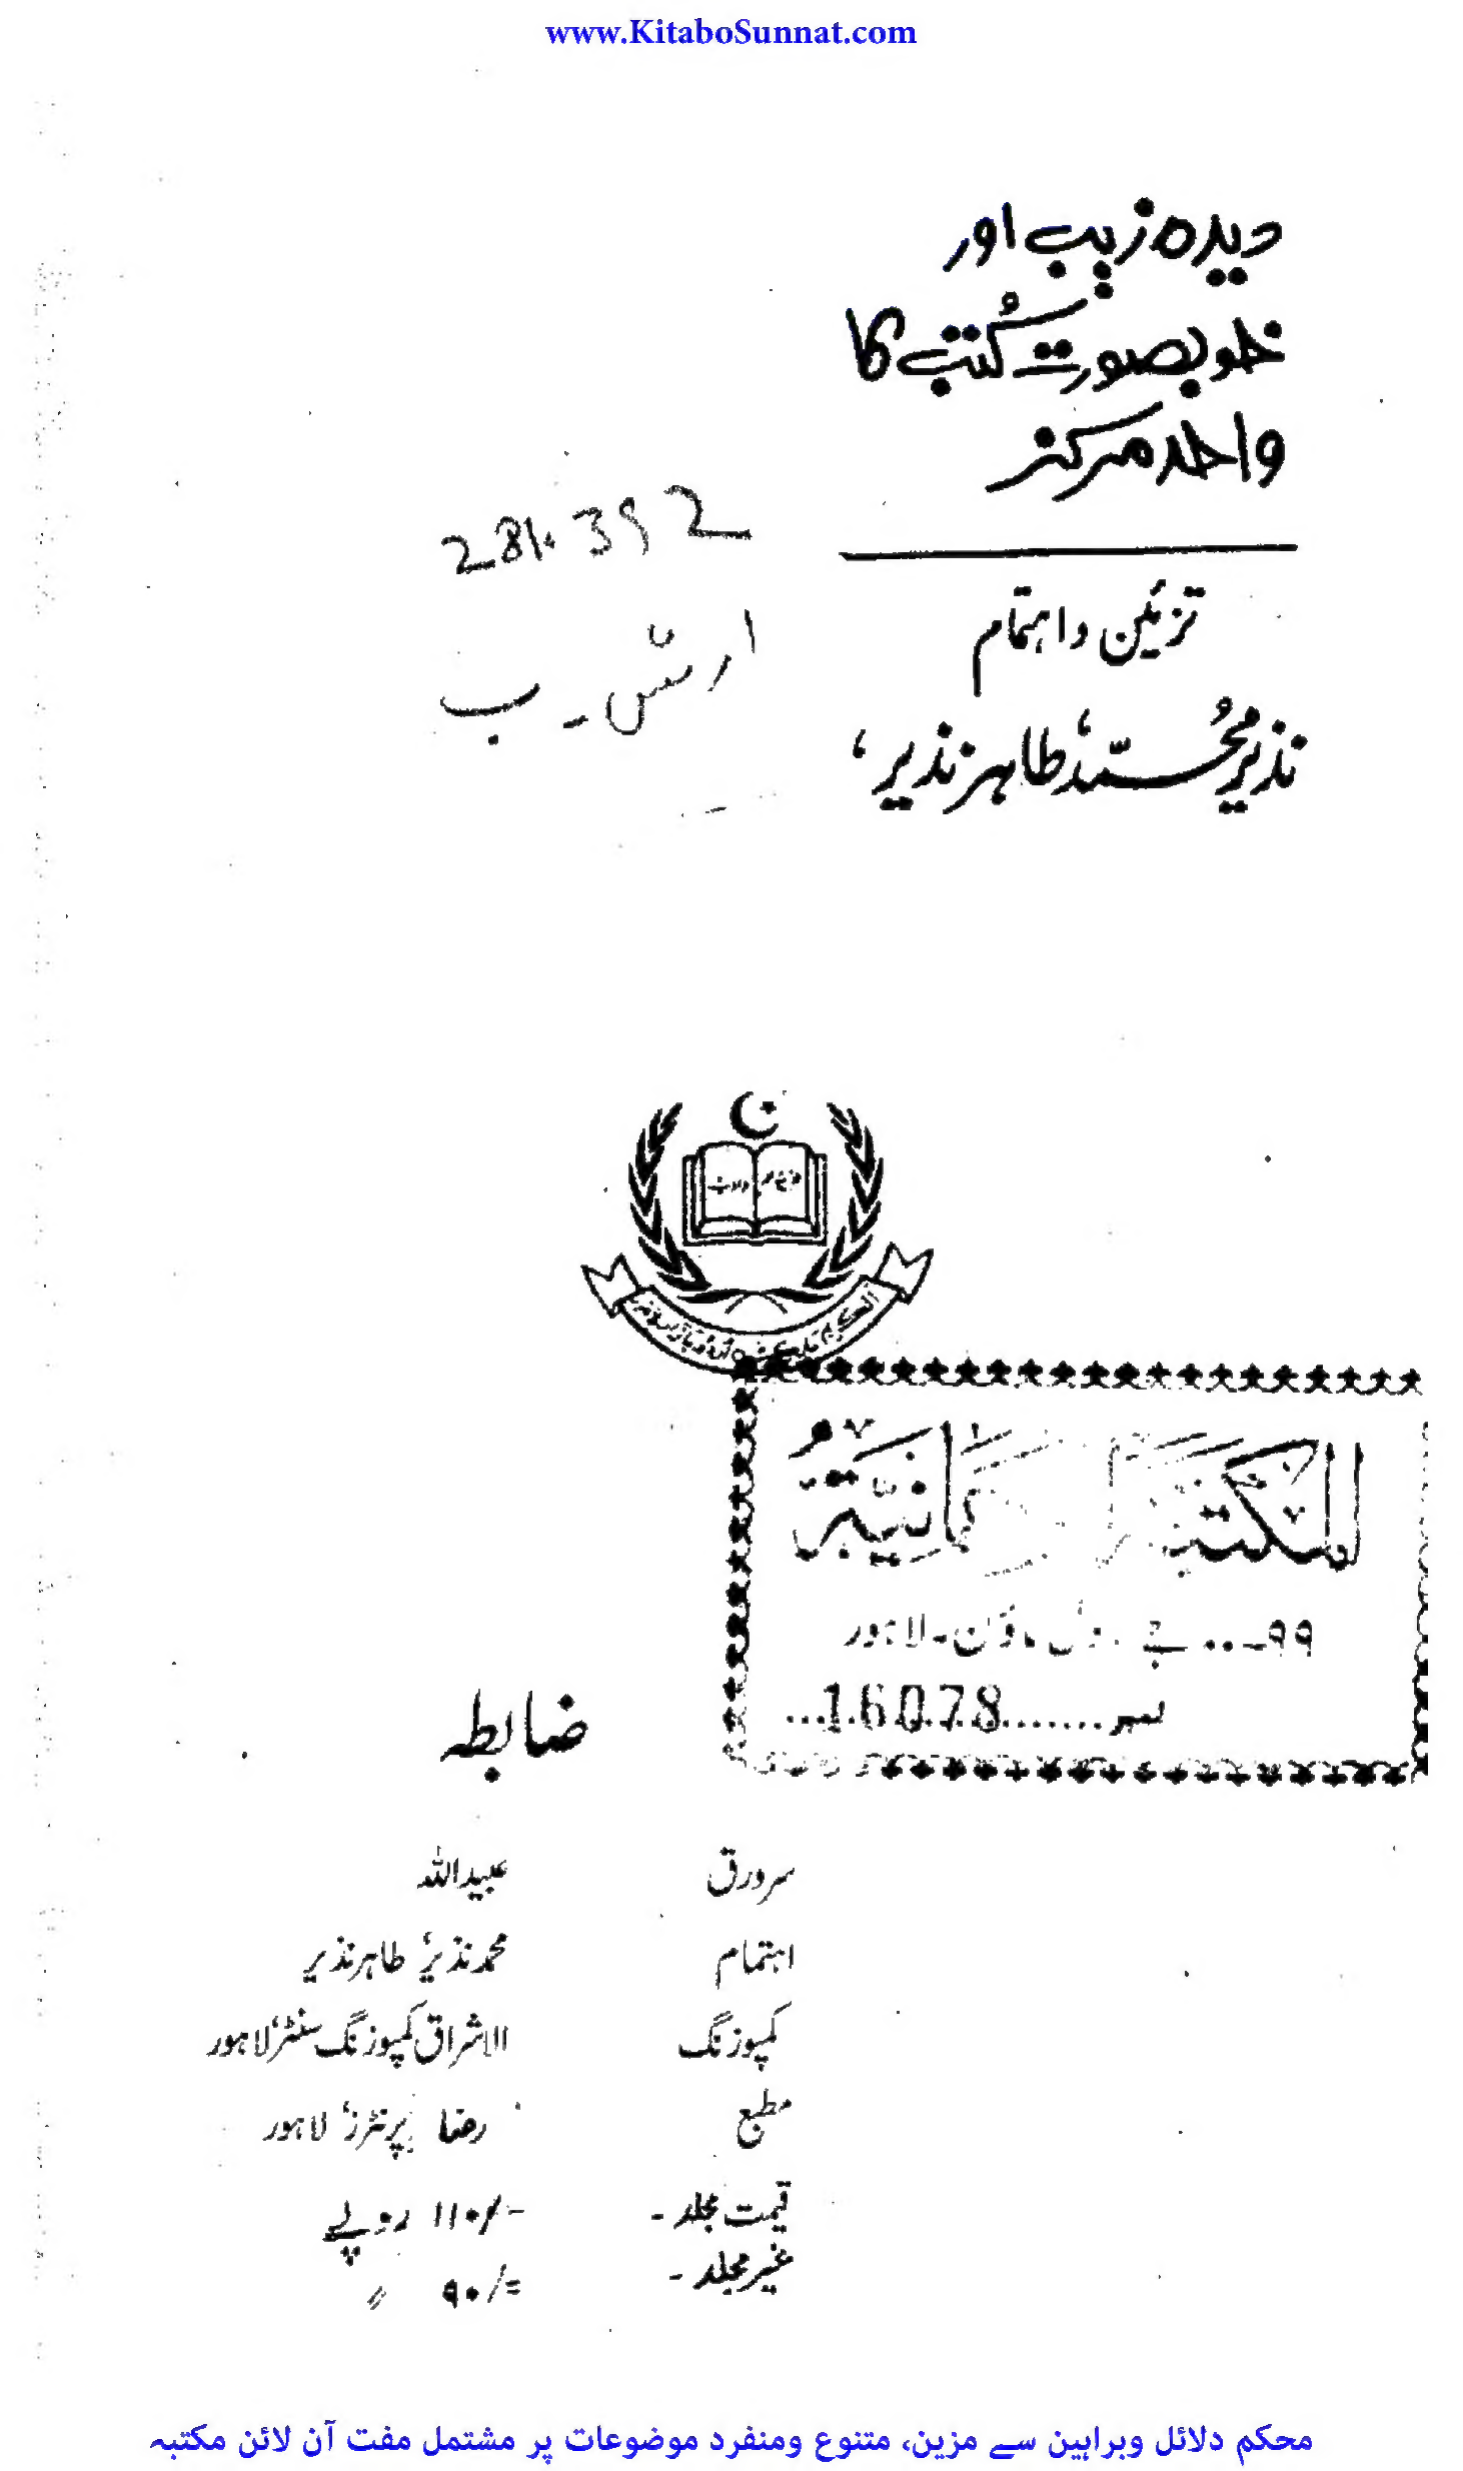 www.KitaboSunnat.com
دیدہ زیب اور
خوبصورت کُتب کا
واحد مرکز
2
ارش ۔ ب
تزئین و اہتمام
نذیر محُمّد، طاہر نذیر،
۹۹۔۔۔ جے لاہور
نمبر.......16078...
ضابطہ
سرورق عبیداللہ
اہتمام محمد نذیر، طاہر نذیر
کمپوزنگ الاشراق کمپوزنگ سنٹر، لاہور
مطبع رضا پرنٹرز، لاہور
قیمت مجلد - ۱۱۰/- روپے
غیر مجلد - ۹۰/= 〃
محکم دلائل وبراہین سے مزین، متنوع ومنفرد موضوعات پر مشتمل مفت آن لائن مکتبہ